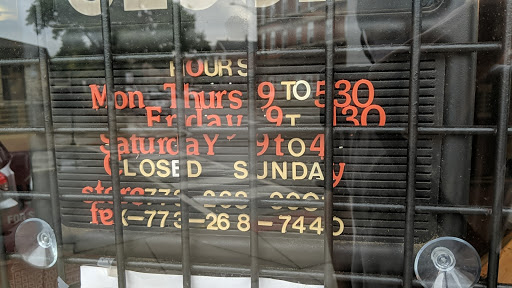 HOURS
Mon Thurs 9 TO 530
Friday 9T
Saturday 9to4
CLOSED SUNDAy
store 773-268-
fex-773-268-7440